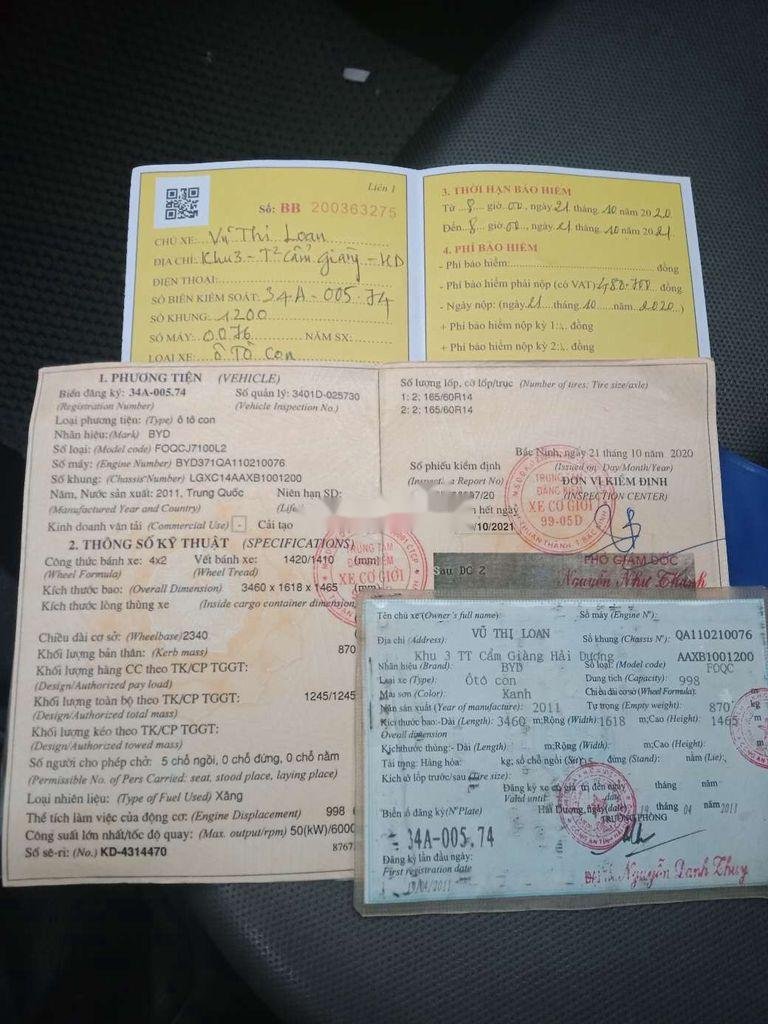 Liên 1
Số: BB 200363275
CHỦ XE: Vũ Thị Loan
ĐỊA CHỈ: Khu3 - T2 Cẩm Giàng - HD
ĐIỆN THOẠI:
SỐ BIỂN KIỂM SOÁT: 34A - 005.74
SỐ KHUNG: 1200
SỐ MÁY: 0076 NĂM SX:
LOẠI XE: Ô Tô Con
3. THỜI HẠN BẢO HIỂM
Từ 8 giờ 00, ngày 21 tháng 10 năm 2020
Đến 8 giờ 00, ngày 21 tháng 10 năm 2021
4. PHÍ BẢO HIỂM
- Phí bảo hiểm: đồng
- Phí bảo hiểm phải nộp (có VAT) 480.700 đồng
- Ngày nộp: (ngày 21 tháng 10 năm 2020)
+ Phí bảo hiểm nộp kỳ 1: đồng
+ Phí bảo hiểm nộp kỳ 2: đồng
1. PHƯƠNG TIỆN (VEHICLE)
Biển đăng ký: 34A-005.74 Số quản lý: 3401D-025730
(Registration Number) (Vehicle Inspection No.)
Loại phương tiện: (Type) ô tô con
Nhãn hiệu: (Mark) BYD
Số loại: (Model code) FOQCJ7100L2
Số máy: (Engine Number) BYD371QA110210076
Số khung: (Chassis Number) LGXC14AAXB1001200
Năm, Nước sản xuất: 2011, Trung Quốc Niên hạn SD:
(Manufactured Year and Country)
Kinh doanh vận tải (Commercial Use) - Cải tạo
2. THÔNG SỐ KỸ THUẬT (SPECIFICATIONS)
Công thức bánh xe: 4x2 Vết bánh xe: 1420/1410 (mm)
(Wheel Formula) (Wheel Tread)
Kích thước bao: (Overall Dimension) 3460 x 1618 x 1465 (mm)
Kích thước lòng thùng xe (Inside cargo container dimension)
Chiều dài cơ sở: (Wheelbase) 2340
Khối lượng bản thân: (Kerb mass) 870
Khối lượng hàng CC theo TK/CP TGGT:
(Design/Authorized pay load)
Khối lượng toàn bộ theo TK/CP TGGT: 1245/1245
(Design/Authorized total mass)
Khối lượng kéo theo TK/CP TGGT:
(Design/Authorized towed mass)
Số người cho phép chở: 5 chỗ ngồi, 0 chỗ đứng, 0 chỗ nằm
(Permissible No. of Pers Carried: seat, stood place, laying place)
Loại nhiên liệu: (Type of Fuel Used) Xăng
Thể tích làm việc của động cơ: (Engine Displacement) 998
Công suất lớn nhất/tốc độ quay: (Max. output/rpm) 50(kW)/6000
Số sê-ri: (No.) KD-4314470 8767
Số lượng lốp, cỡ lốp/trục (Number of tires: Tire size/axle)
1: 2; 165/60R14
2: 2; 165/60R14
Bắc Ninh, ngày 21 tháng 10 năm 2020
Số phiếu kiểm định (Issued on: Day/Month/Year)
ĐƠN VỊ KIỂM ĐỊNH
(INSPECTION CENTER)
/10/2021
TRUNG TÂM
ĐĂNG KIỂM
XE CƠ GIỚI
99-05D
PHÓ GIÁM ĐỐC
Nguyễn Như Thành
XE CƠ GIỚI
Tên chủ xe (Owner's full name): Số máy (Engine N°):
VŨ THỊ LOAN QA110210076
Địa chỉ (Address): Số khung (Chassis N°):
Khu 3 TT Cẩm Giàng Hải Dương AAXB1001200
Nhãn hiệu (Brand): BYD Số loại: (Model code) FOQC
Loại xe (Type) Ôtô con Dung tích (Capacity): 998
Màu sơn (Color): Xanh Chiều dài cơ sở (Wheel Formula):
Năm sản xuất (Year of manufacture): 2011 Tự trọng (Empty weight): 870 kg
Kích thước bao: Dài (Length): 3460 m; Rộng (Width): 1618 m; Cao (Height): 1465
Oveall dimension
Kích thước thùng: Dài (Length): m; Rộng (Width): m; Cao (Height):
Tải trọng: Hàng hóa: kg; số chỗ ngồi (Sit) 5 đứng (Stand): nằm (Lie):
Kích cỡ lốp trước/sau (Tire size):
Đăng ký xe có giá trị đến ngày tháng năm
Valid until
Biển số đăng ký (N° Plate) Hải Dương, ngày (date) 19 tháng 04 năm 2011
TRƯỞNG PHÒNG
34A-005.74
Đăng ký lần đầu ngày:
First registration date
19/04/2011
Nguyễn Danh Thuy